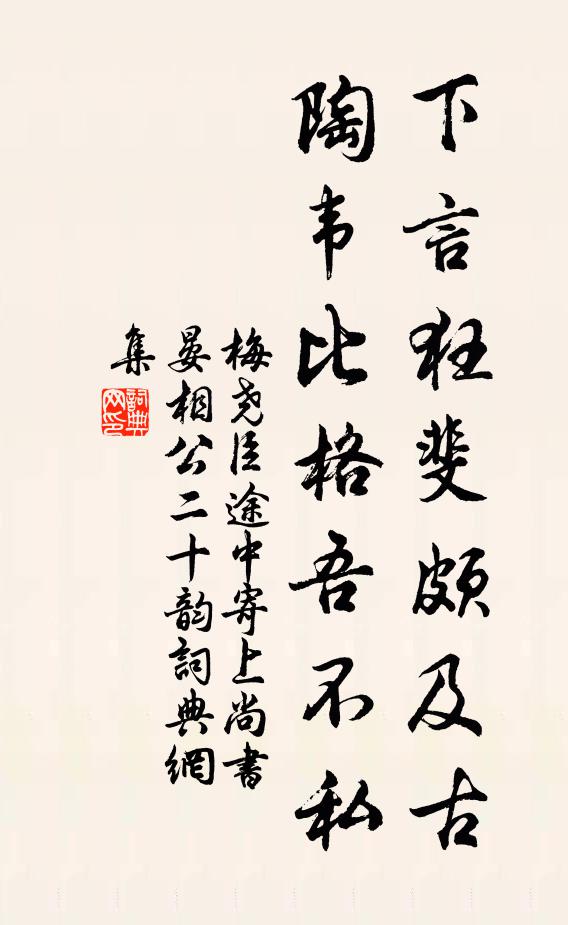 下言狂斐颇及古
陶韦比格吾不私
梅尧臣途中寄上尚书
晏相公二十韵詞典網
集
詞典网印